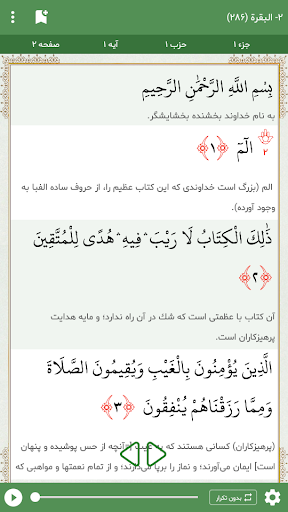 ۲- البقرة (۲۸۶)
جزء ۱ حزب ۱ آیه ۱ صفحه ۲
بِسْمِ اللَّهِ الرَّحْمَٰنِ الرَّحِيمِ
به نام خداوند بخشنده بخشایشگر.
۲ الٓمٓ ﴿۱﴾
الم (بزرگ است خداوندی که این کتاب عظیم را، از حروف ساده الفبا به
وجود آورده).
ذَٰلِكَ الْكِتَابُ لَا رَيْبَ ۛ فِيهِ ۛ هُدًى لِلْمُتَّقِينَ
﴿۲﴾
آن کتاب با عظمتی است که شك در آن راه ندارد؛ و مایه هدایت
پرهیزکاران است.
الَّذِينَ يُؤْمِنُونَ بِالْغَيْبِ وَيُقِيمُونَ الصَّلَاةَ
وَمِمَّا رَزَقْنَاهُمْ يُنْفِقُونَ ﴿۳﴾
(پرهیزکاران) کسانی هستند که به غیب [=آنچه از حس پوشیده و پنهان
است] ایمان می‌آورند؛ و نماز را برپا می‌دارند؛ و از تمام نعمتها و مواهبی که
بدون تکرار